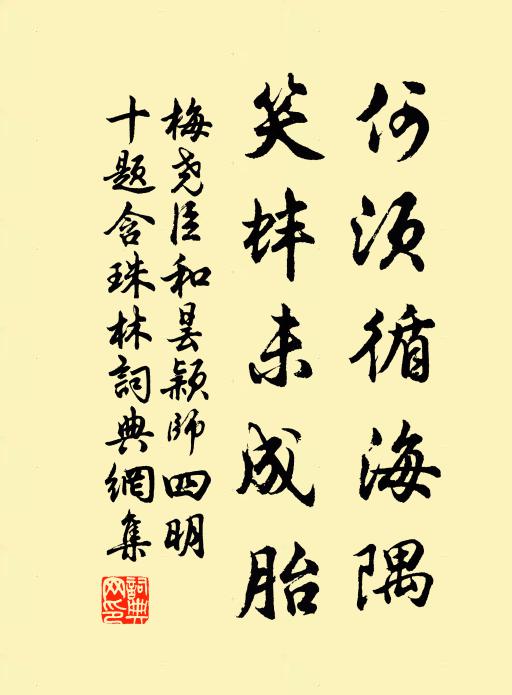 何须循海隅
笑蚌未成胎
梅尧臣和昙颖师四明
十题含珠林詞典網集
詞典